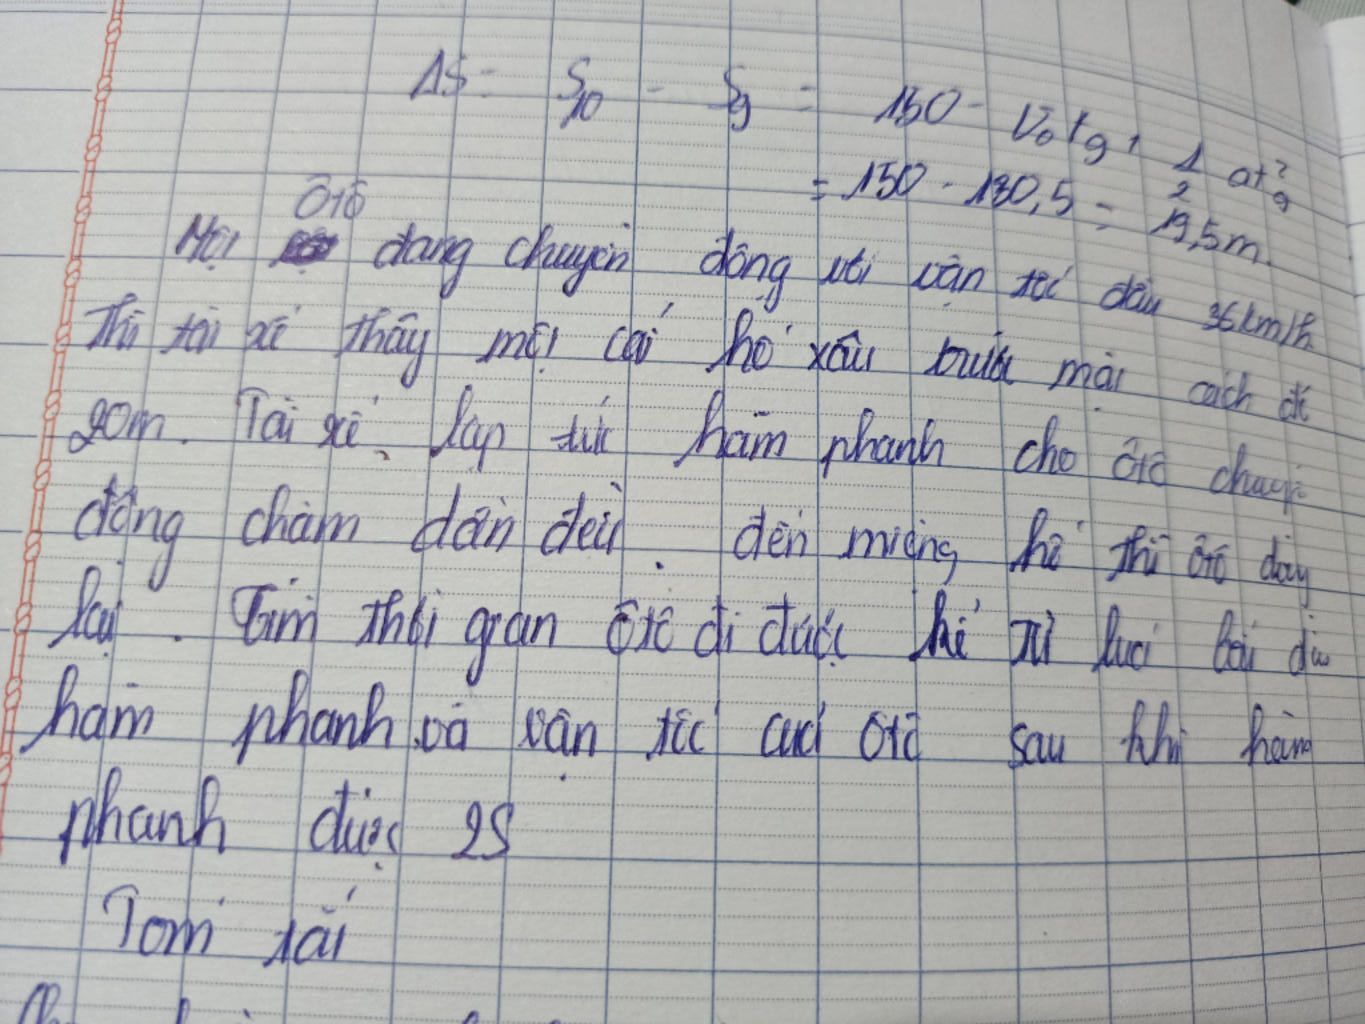 ΔS = S₁₀ - S₉ = 150 - V₀t₉ + 1/2 at₉²
= 150 - 130,5 = 19,5m.
Một ôtô đang chuyển động với vận tốc đầu 36km/h
Thì tài xế thấy một cái hố xấu trước mặt cách đó
20m. Tài xế lập tức hãm phanh cho ôtô chuyển
động chậm dần đều. đến miệng hố thì ôtô dừng
lại. Tìm thời gian ôtô đi được kể từ lúc bắt đầu
hãm phanh và vận tốc của ôtô sau khi hãm
phanh được 2S
Tóm tắt